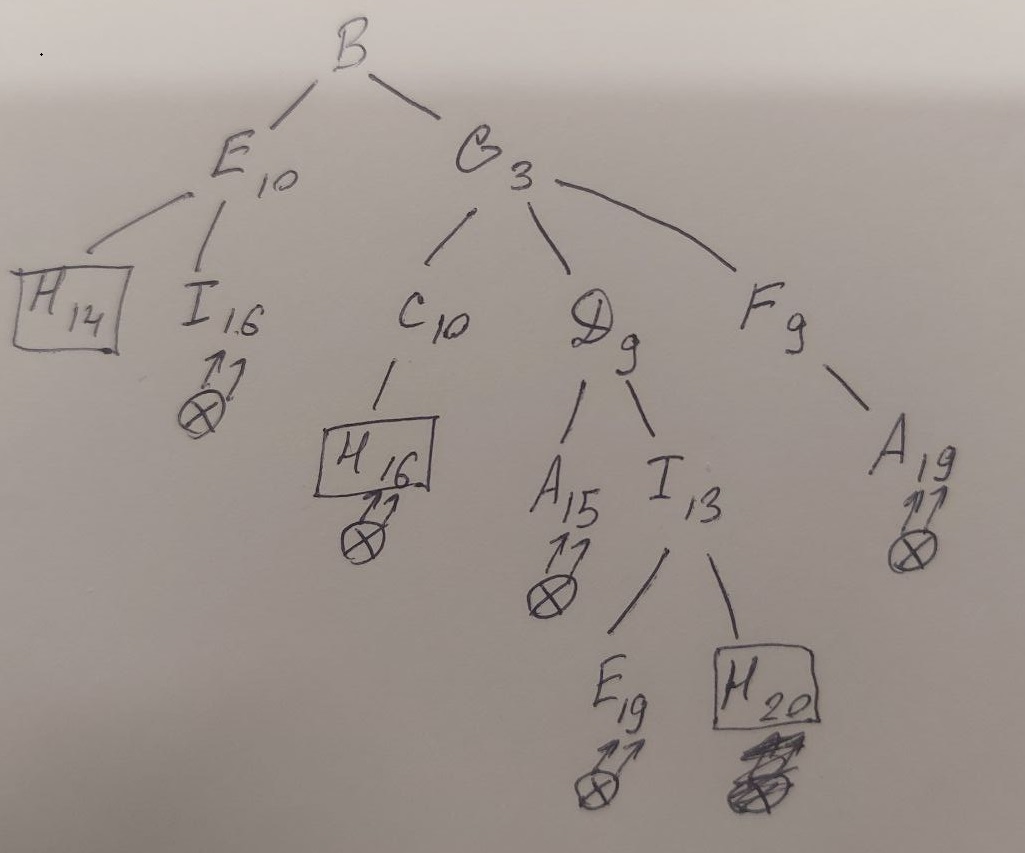 B
E10 G3
H14 I16 C10 D9 F9
H16 A15 I13 A19
E19 H20